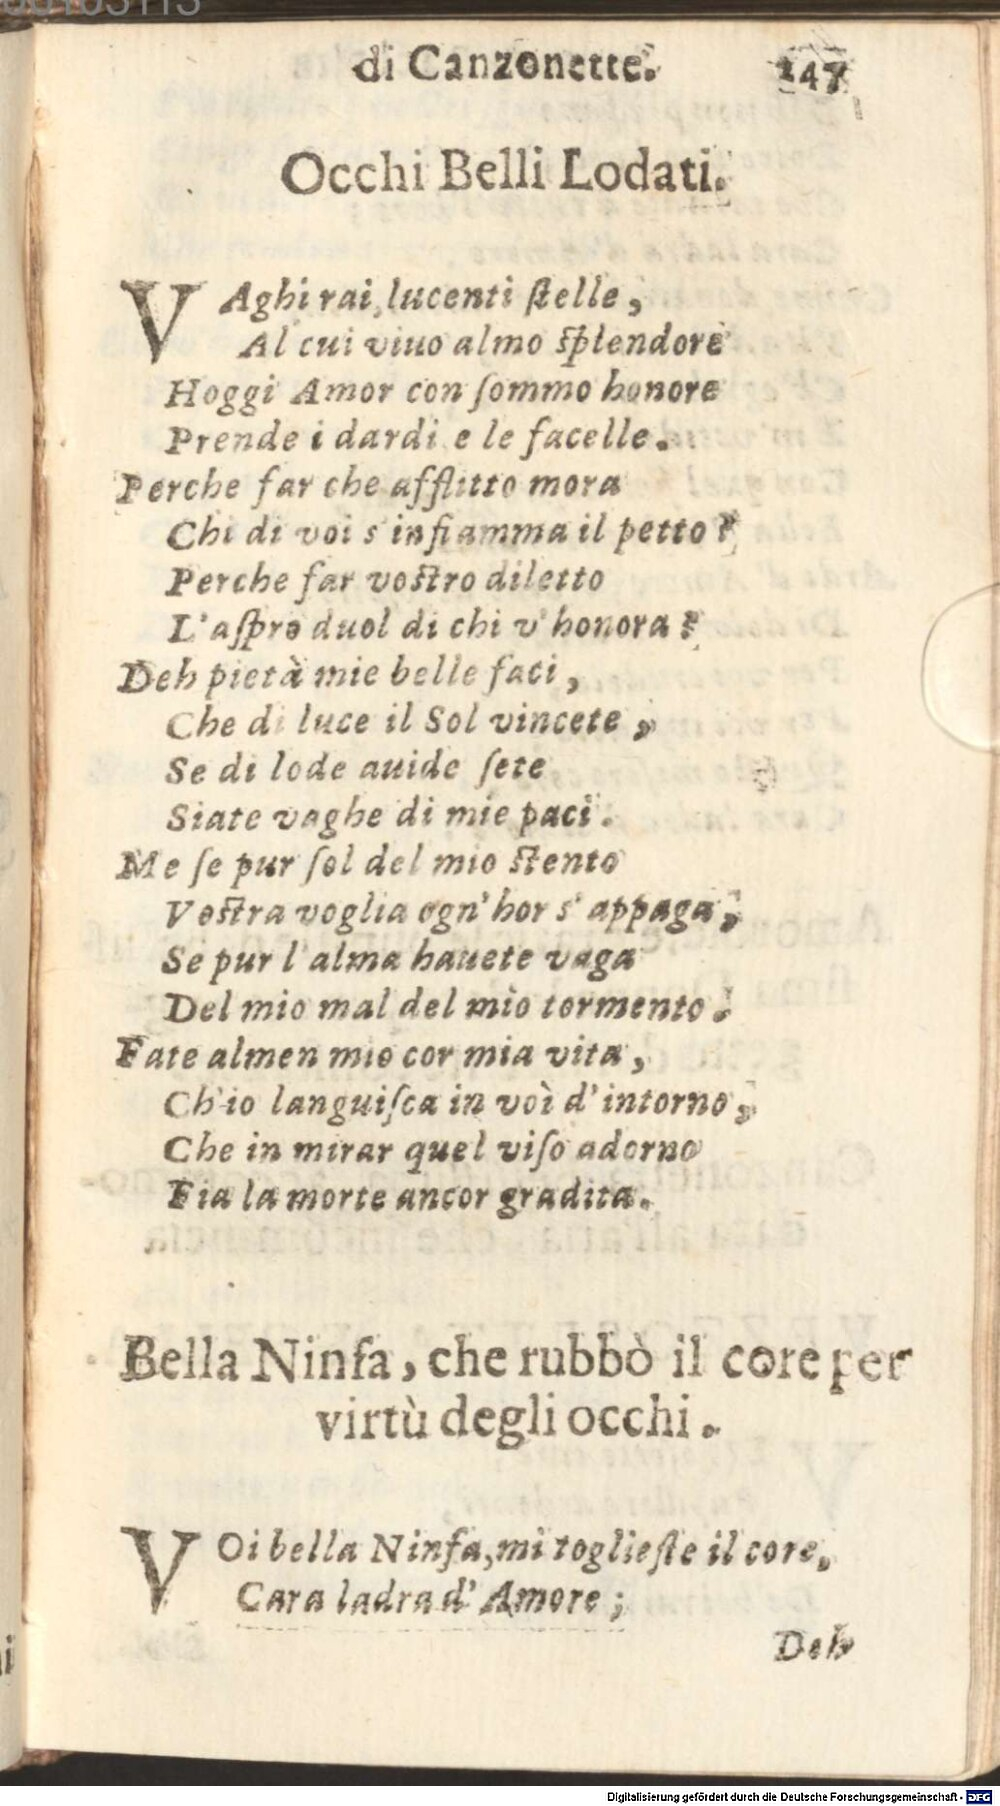 di Canzonette. 147
Occhi Belli Lodati.
VAghi rai, lucenti ſtelle,
Al cui viuo almo ſplendore
Hoggi Amor con ſommo honore
Prende i dardi e le facelle.
Perche far che afflitto mora
Chi di voi s'infiamma il petto?
Perche far voſtro diletto
L'aſpro duol di chi v'honora?
Deh pietà mie belle faci,
Che di luce il Sol vincete,
Se di lode auide ſete
Siate vaghe di mie paci.
Me ſe pur ſol del mio ſtento
Voſtra voglia ogn'hor s'appaga,
Se pur l'alma hauete vaga
Del mio mal del mio tormento.
Fate almen mio cor mia vita,
Ch'io languiſca in voi d'intorno,
Che in mirar quel viſo adorno
Fia la morte ancor gradita.
Bella Ninfa, che rubbò il core per
virtù degli occhi.
VOi bella Ninfa, mi toglieſte il core,
Cara ladra d'Amore;
Deh
Digitalisierung gefördert durch die Deutsche Forschungsgemeinschaft - DFG